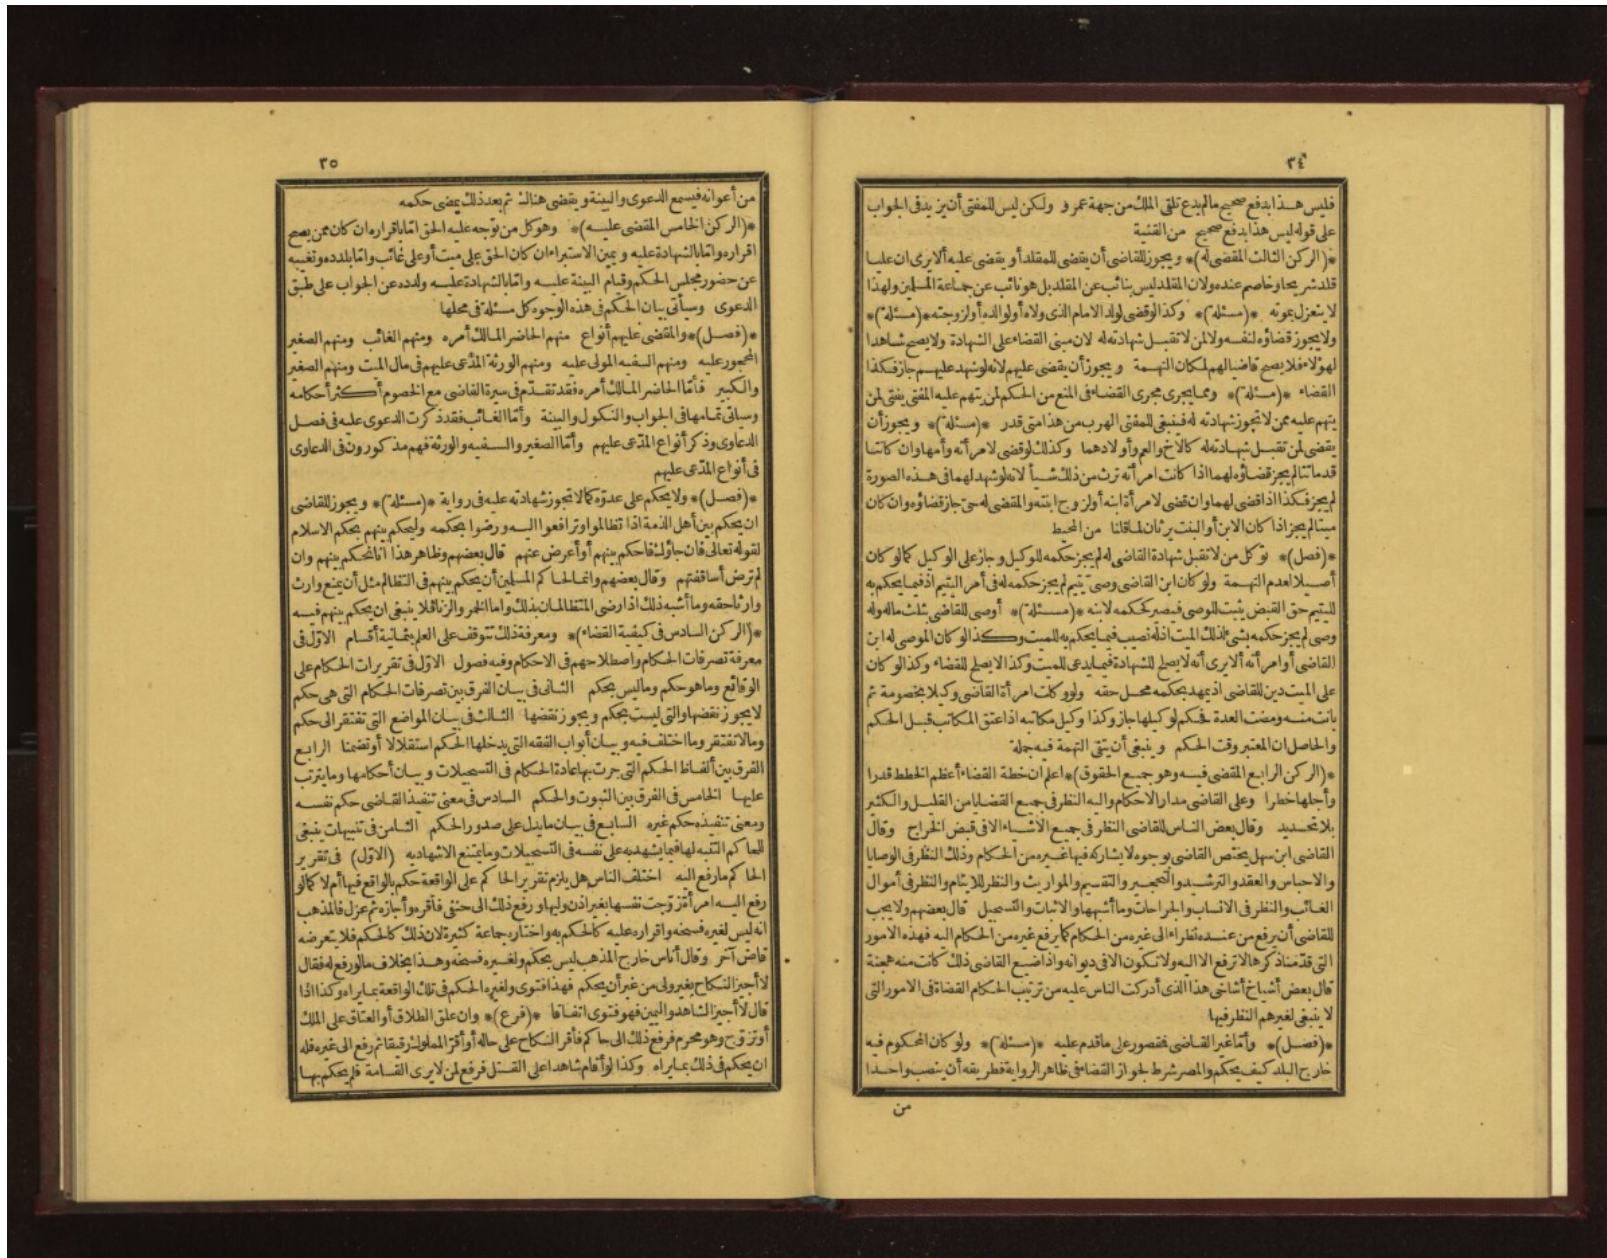 ٣٤
فليس هذا بدفع صحيح مالم يدع تلقى الملك من جهة عمرو ولكن ليس للمفتى أن يزيد فى الجواب
على قوله ليس هذا بدفع صحيح من القنية
*(الركن الثالث المقضى له)* ويجوز للقاضى أن يقضى للمقلد أو يقضى عليه ألا يرى ان عليا
قلد شريحا وخاصم عنده ولان المقلد ليس بنائب عن المقلد بل هو نائب عن جماعة المسلمين ولهذا
لا ينعزل بموته *(مسئلة)* وكذا لو قضى لولد الامام الذى ولاه أو لوالده أو لزوجته *(مسئلة)*
ولا يجوز قضاؤه لنفسه ولا لمن لا تقبل شهادته له لان مبنى القضاء على الشهادة ولا يصح شاهدا
لهؤلاء فلا يصح قاضيا لهم لمكان التهمة ويجوز أن يقضى عليهم لانه لو شهد عليهم جاز فكذا
القضاء *(مسئلة)* ومما يجرى مجرى القضاء فى المنع من الحكم لمن يتهم عليه المفتى يفتى لمن
يتهم عليه ممن لا تجوز شهادته له فينبغى للمفتى الهرب من هذا متى قدر *(مسئلة)* ويجوز أن
يقضى لمن تقبل شهادته له كالاخ والعم وأولادهما وكذلك لو قضى لامرأته وأمها وان كانتا
قد ماتتا لم يجز قضاؤه لهما اذا كانت امرأته ترث من ذلك شيأ لانه لو شهد لهما فى هذه الصورة
لم يجز فكذا اذا قضى لهما وان قضى لامرأة ابنه أو لزوج ابنته والمقضى له حى جاز قضاؤه وان كان
ميتا لم يجز اذا كان الابن أو البنت يرثان لما قلنا من المحيط
*(فصل)* توكل من لا تقبل شهادة القاضى له لم يجز حكمه للوكيل وجاز على الوكيل كما لو كان
أصيلا لعدم التهمة ولو كان ابن القاضى وصى يتيم لم يجز حكمه له فى أمر اليتيم اذ فيما يحكم به
لليتيم حق القبض يثبت للوصى فيصير كحكمه لابنه *(مسئلة)* أوصى للقاضى بثلث ماله وله
وصى لم يجز حكمه بشئ لذلك الميت اذ له نصيب فيما يحكم به للميت وكذا لو كان الموصى له ابن
القاضى أو امرأته ألا يرى أنه لا يصلح للشهادة فيما يدعى للميت وكذا لا يصلح للقضاء وكذا لو كان
على الميت دين للقاضى اذ يمهد بحكمه محل حقه ولو وكلت امرأة القاضى وكيلا بخصومة ثم
بانت منه ومضت العدة فحكم لوكيلها جاز وكذا وكيل مكاتبه اذا عتق المكاتب قبل الحكم
والحاصل ان المعتبر وقت الحكم وينبغى أن يتقى التهمة فيه جملة
*(الركن الرابع المقضى فيه وهو جميع الحقوق)* اعلم ان خطة القضاء أعظم الخطط قدرا
وأجلها خطرا وعلى القاضى مدار الاحكام واليه النظر فى جميع القضايا من القليل والكثير
بلا تحديد وقال بعض الناس للقاضى النظر فى جميع الاشياء الا فى قبض الخراج وقال
القاضى ابن سهل يختص القاضى بوجوه لا يشاركه فيها غيره من الحكام وذلك النظر فى الوصايا
والاحباس والعقد والترشيد والتحجير والتقسيم والمواريث والنظر للايتام والنظر فى أموال
الغائب والنظر فى الانساب والجراحات وما أشبهها والاثبات والتسجيل قال بعضهم ولا يجب
للقاضى أن يرفع من عنده نظراء الى غيره من الحكام كما يرفع غيره من الحكام اليه فهذه الامور
التى قدمنا ذكرها لا ترفع الا اليه ولا تكون الا فى ديوانه واذا ضيع القاضى ذلك كانت منه هجنة
قال بعض أشياخ أشياخى هذا الذى أدركت الناس عليه من ترتيب الحكام القضاة فى الامور التى
لا ينبغى لغيرهم النظر فيها
*(فصل)* وأما غير القاضى فمقصور على ما قدم عليه *(مسئلة)* ولو كان المحكوم فيه
خارج البلد كيف يحكم والمصر شرط لجواز القضاء فى ظاهر الرواية فطريقه أن ينصب واحدا
من
٣٥
من أعوانه فيسمع الدعوى والبينة ويقضى هنالك ثم بعد ذلك يمضى حكمه
*(الركن الخامس المقضى عليه)* وهو كل من توجه عليه الحق اما باقراره ان كان ممن يصح
اقراره واما بالشهادة عليه ويمين الاستبراء ان كان الحق على ميت أو على غائب واما بلدده وتغيبه
عن حضور مجلس الحكم وقيام البينة عليه واما بالشهادة عليه ولدده عن الجواب على طبق
الدعوى وسيأتى بيان الحكم فى هذه الوجوه كل مسئلة فى محلها
*(فصل)* والمقضى عليهم أنواع منهم الحاضر المالك أمره ومنهم الغائب ومنهم الصغير
المحجور عليه ومنهم السفيه المولى عليه ومنهم الورثة المدعى عليهم فى مال الميت ومنهم الصغير
والكبير فأما الحاضر المالك أمره فقد تقدم فى سيرة القاضى مع الخصوم أكثر أحكامه
وسيأتى تمامها فى الجواب والنكول والبينة وأما الغائب فقد ذكرت الدعوى عليه فى فصل
الدعاوى وذكر أنواع المدعى عليهم وأما الصغير والسفيه والورثة فهم مذكورون فى الدعاوى
فى أنواع المدعى عليهم
*(فصل)* ولا يحكم على عدوه كما لا تجوز شهادته عليه فى رواية *(مسئلة)* ويجوز للقاضى
ان يحكم بين أهل الذمة اذا تظالموا وترافعوا اليه ورضوا بحكمه وليحكم بينهم بحكم الاسلام
لقوله تعالى فان جاؤك فاحكم بينهم أو أعرض عنهم قال بعضهم وظاهر هذا انا نحكم بينهم وان
لم ترض أساقفتهم وقال بعضهم وانما لحاكم المسلمين أن يحكم بينهم فى التظالم مثل أن يمنع وارث
وارثا حقه وما أشبه ذلك اذا رضى المتظالمان بذلك واما الخمر والزنا فلا ينبغى ان يحكم بينهم فيه
*(الركن السادس فى كيفية القضاء)* ومعرفة ذلك تتوقف على العلم بثمانية أقسام الاول فى
معرفة تصرفات الحكام واصطلاحهم فى الاحكام وفيه فصول الاول فى تقريرات الحكام على
الوقائع وما هو حكم وما ليس بحكم الثانى فى بيان الفرق بين تصرفات الحكام التى هى حكم
لا يجوز نقضها والتى ليست بحكم ويجوز نقضها الثالث فى بيان المواضع التى تفتقر الى حكم
وما لا تفتقر وما اختلف فيه وبيان أبواب الفقه التى يدخلها الحكم استقلالا أو تضمنا الرابع
الفرق بين ألفاظ الحكم التى جرت بها عادة الحكام فى التسجيلات وبيان أحكامها وما يترتب
عليها الخامس فى الفرق بين الثبوت والحكم السادس فى معنى تنفيذ القاضى حكم نفسه
ومعنى تنفيذه حكم غيره السابع فى بيان ما يدل على صدور الحكم الثامن فى تنبيهات ينبغى
للحاكم التنبه لها فيما يشهد به على نفسه فى التسجيلات وما يمتنع الاشهاد به (الاول) فى تقرير
الحاكم ما رفع اليه اختلف الناس هل يلزم تقرير الحاكم على الواقعة حكم بالواقع فيها أم لا كما لو
رفع اليه امرأة زوجت نفسها بغير اذن وليها ورفع ذلك الى حنفى فأقره وأجازه ثم عزل فالمذهب
انه ليس لغيره فسخه واقراره عليه كالحكم به واختاره جماعة كثيرة لان ذلك كالحكم فلا يتعرضه
قاض آخر وقال أناس خارج المذهب ليس بحكم ولغيره فسخه وهذا بخلاف ما لو رفع له فقال
لا أجيز النكاح بغير ولى من غير أن يحكم فهذا فتوى ولغيره الحكم فى تلك الواقعة بما يراه وكذا اذا
قال لا أجيز الشاهد واليمين فهو فتوى اتفاقا *(فرع)* وان علق الطلاق أو العتاق على الملك
أو تزوج وهو محرم فرفع ذلك الى حاكم فأقر النكاح على حاله أو أقر المملوك رقيقا ثم رفع الى غيره فله
ان يحكم فى ذلك بما يراه وكذا لو أقام شاهدا على القتل فرفع لمن لا يرى القسامة فلم يحكم بها